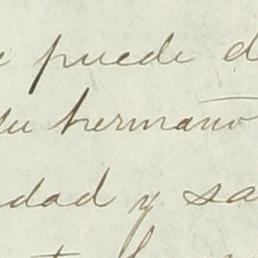 puede d
su hermano
dad y sa